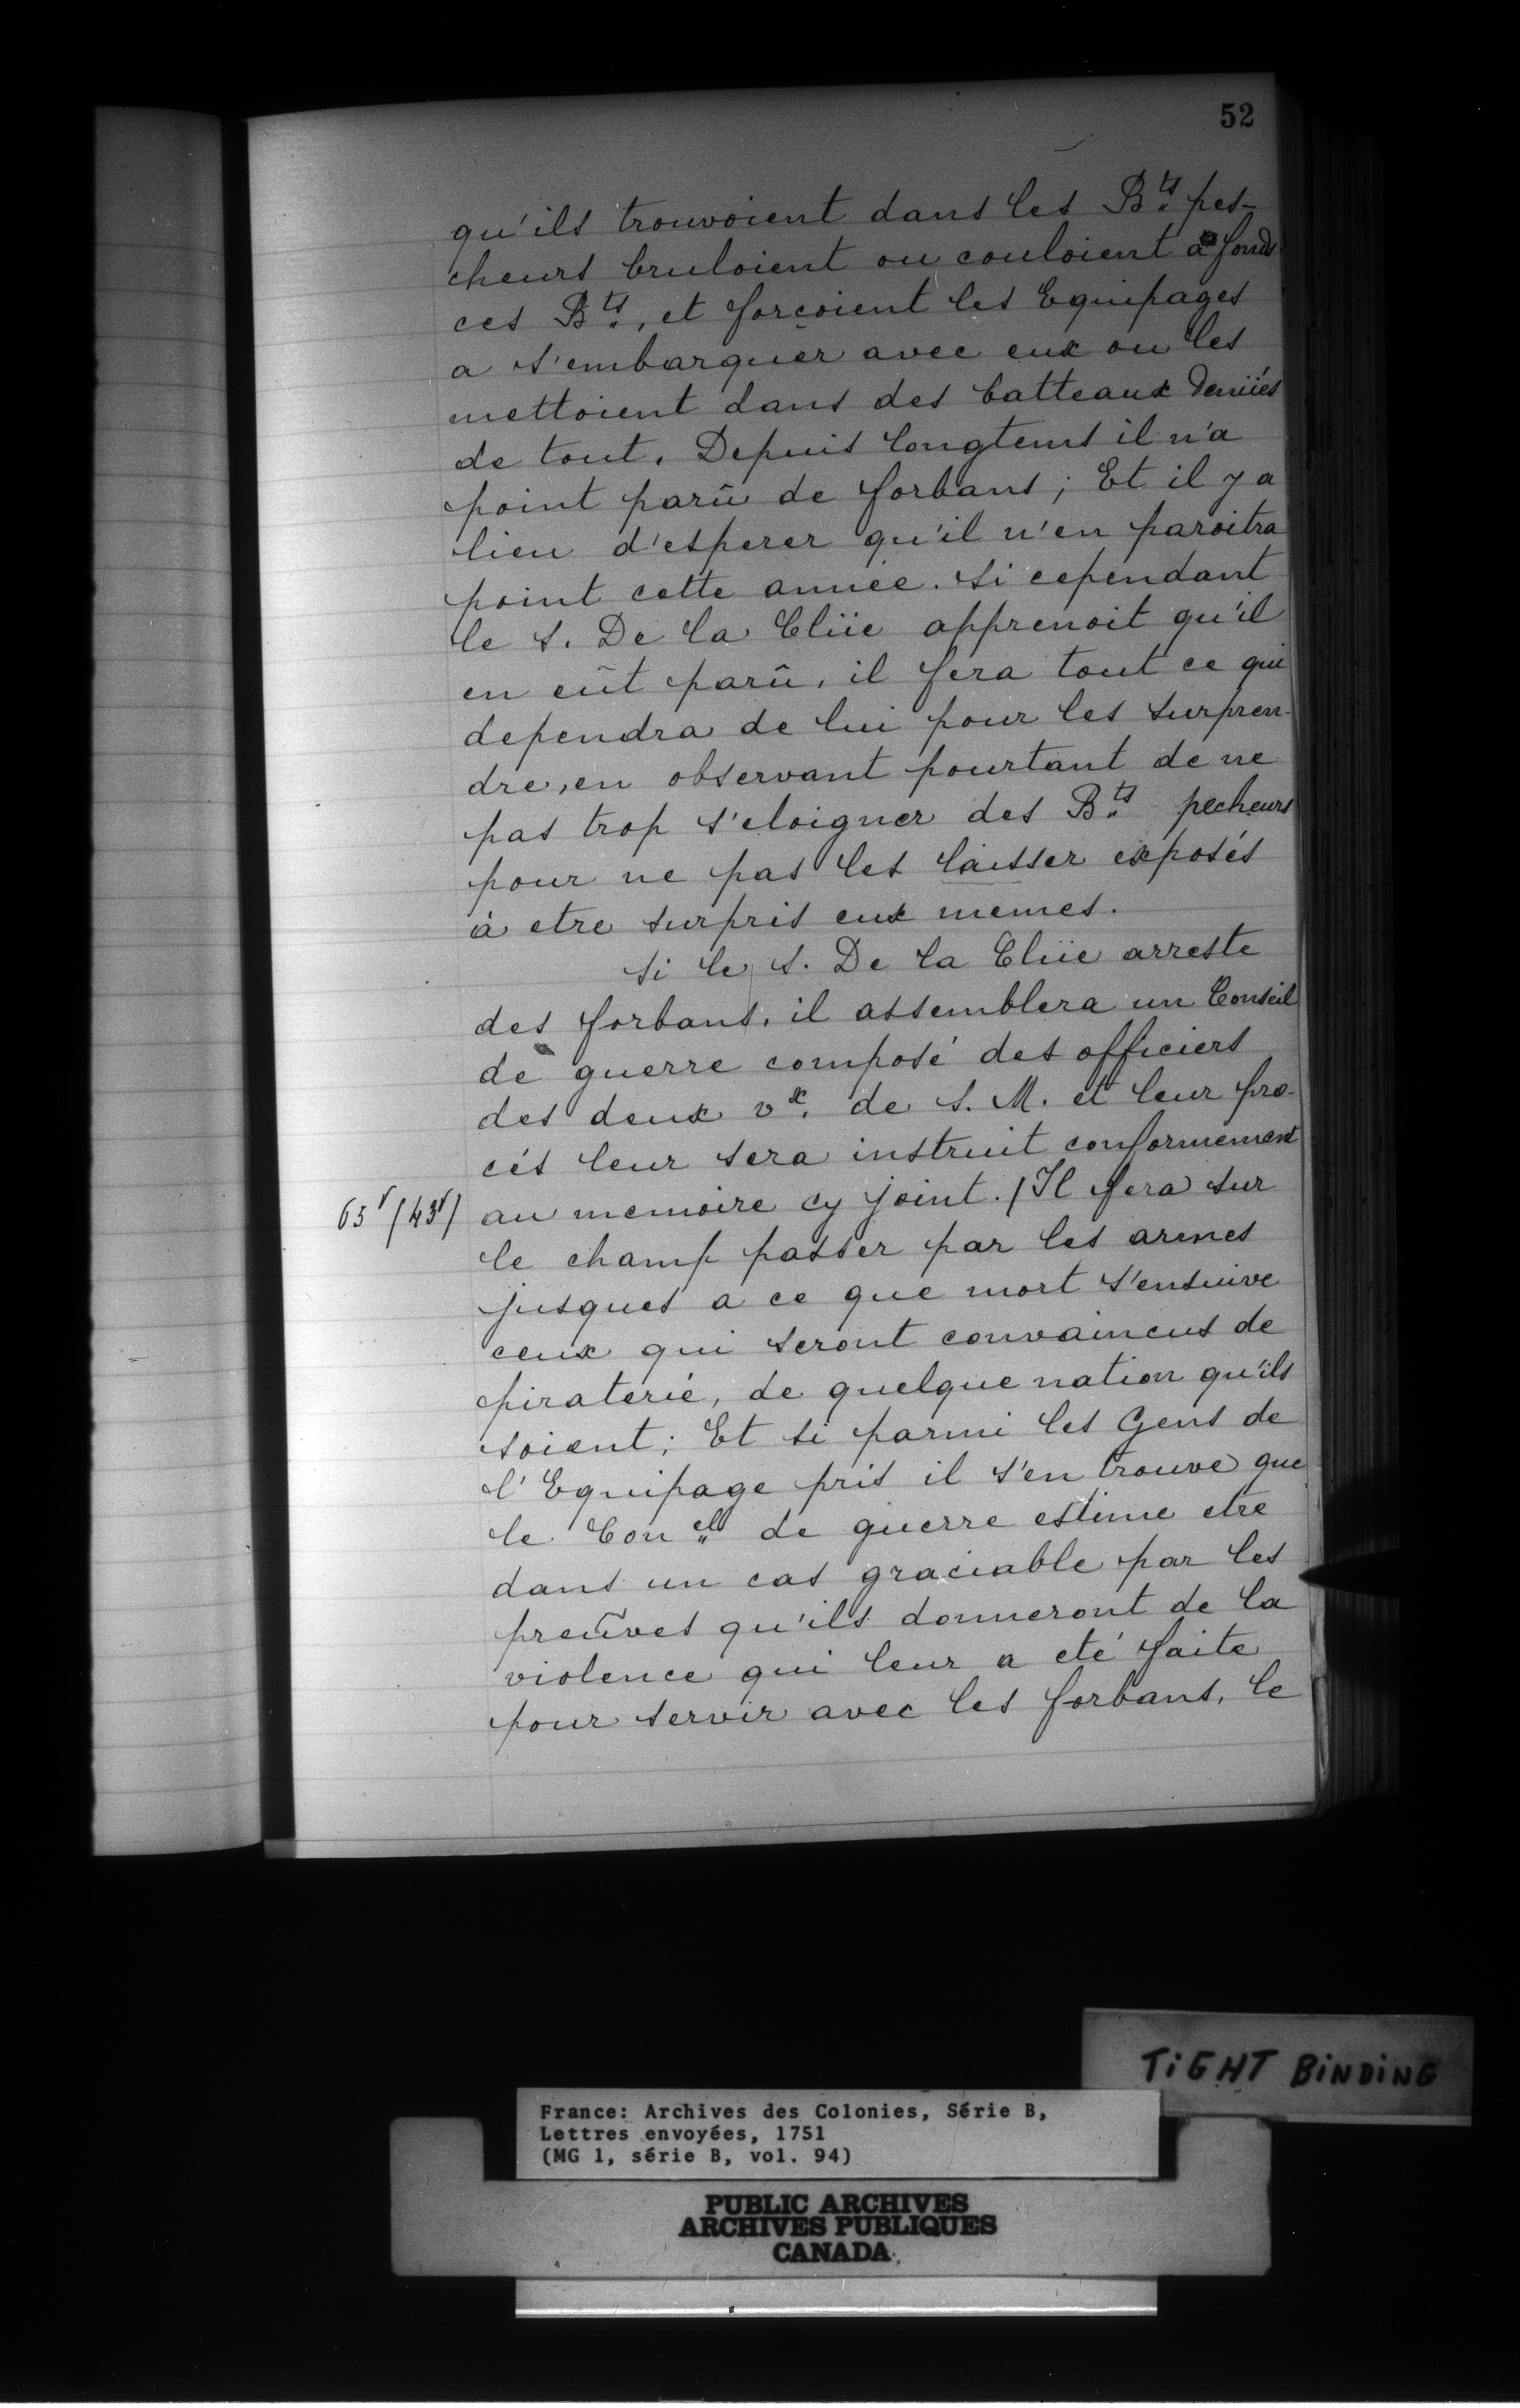 52
qu'ils trouvoient dans les B.ts pes-
cheurs bruloient ou couloient a fonds
ces B.ts, et forçoient les Equipages
a s'embarquer avec eux ou les
mettoient dans des batteaux denüés
de tout. Depuis longtems il n'a
point parû de forbans; Et il y a
lieu d'esperer qu'il n'en paroitra
point cette année. Si cependant
le S. De la Clüe apprenoit qu'il
en eût parû, il fera tout ce qui
dependra de lui pour les surpren-
dre, en observant pourtant de ne
pas trop s'eloigner des B.ts pecheurs
pour ne pas les laisser exposés
à etre surpris eux memes.
Si le S. De la Clüe arreste
des forbans, il assemblera un Conseil
de guerre composé des officiers
des deux v.x de S. M. et leur pro-
cés leur sera instruit conformement
65v/43v/ au memoire cy joint. / Il fera sur
le champ passer par les armes
jusques a ce que mort s'ensuive
ceux qui seront convaincus de
piraterie, de quelque nation qu'ils
soient; Et si parmi les Gens de
l'Equipage pris il s'en trouve que
le Con.el de guerre estime etre
dans un cas graciable par les
preûves qu'ils donneront de la
violence qui leur a eté faite
pour servir avec les forbans, le
TIGHT BINDING
France: Archives des Colonies, Série B,
Lettres envoyées, 1751
(MG 1, série B, vol. 94)
PUBLIC ARCHIVES
ARCHIVES PUBLIQUES
CANADA